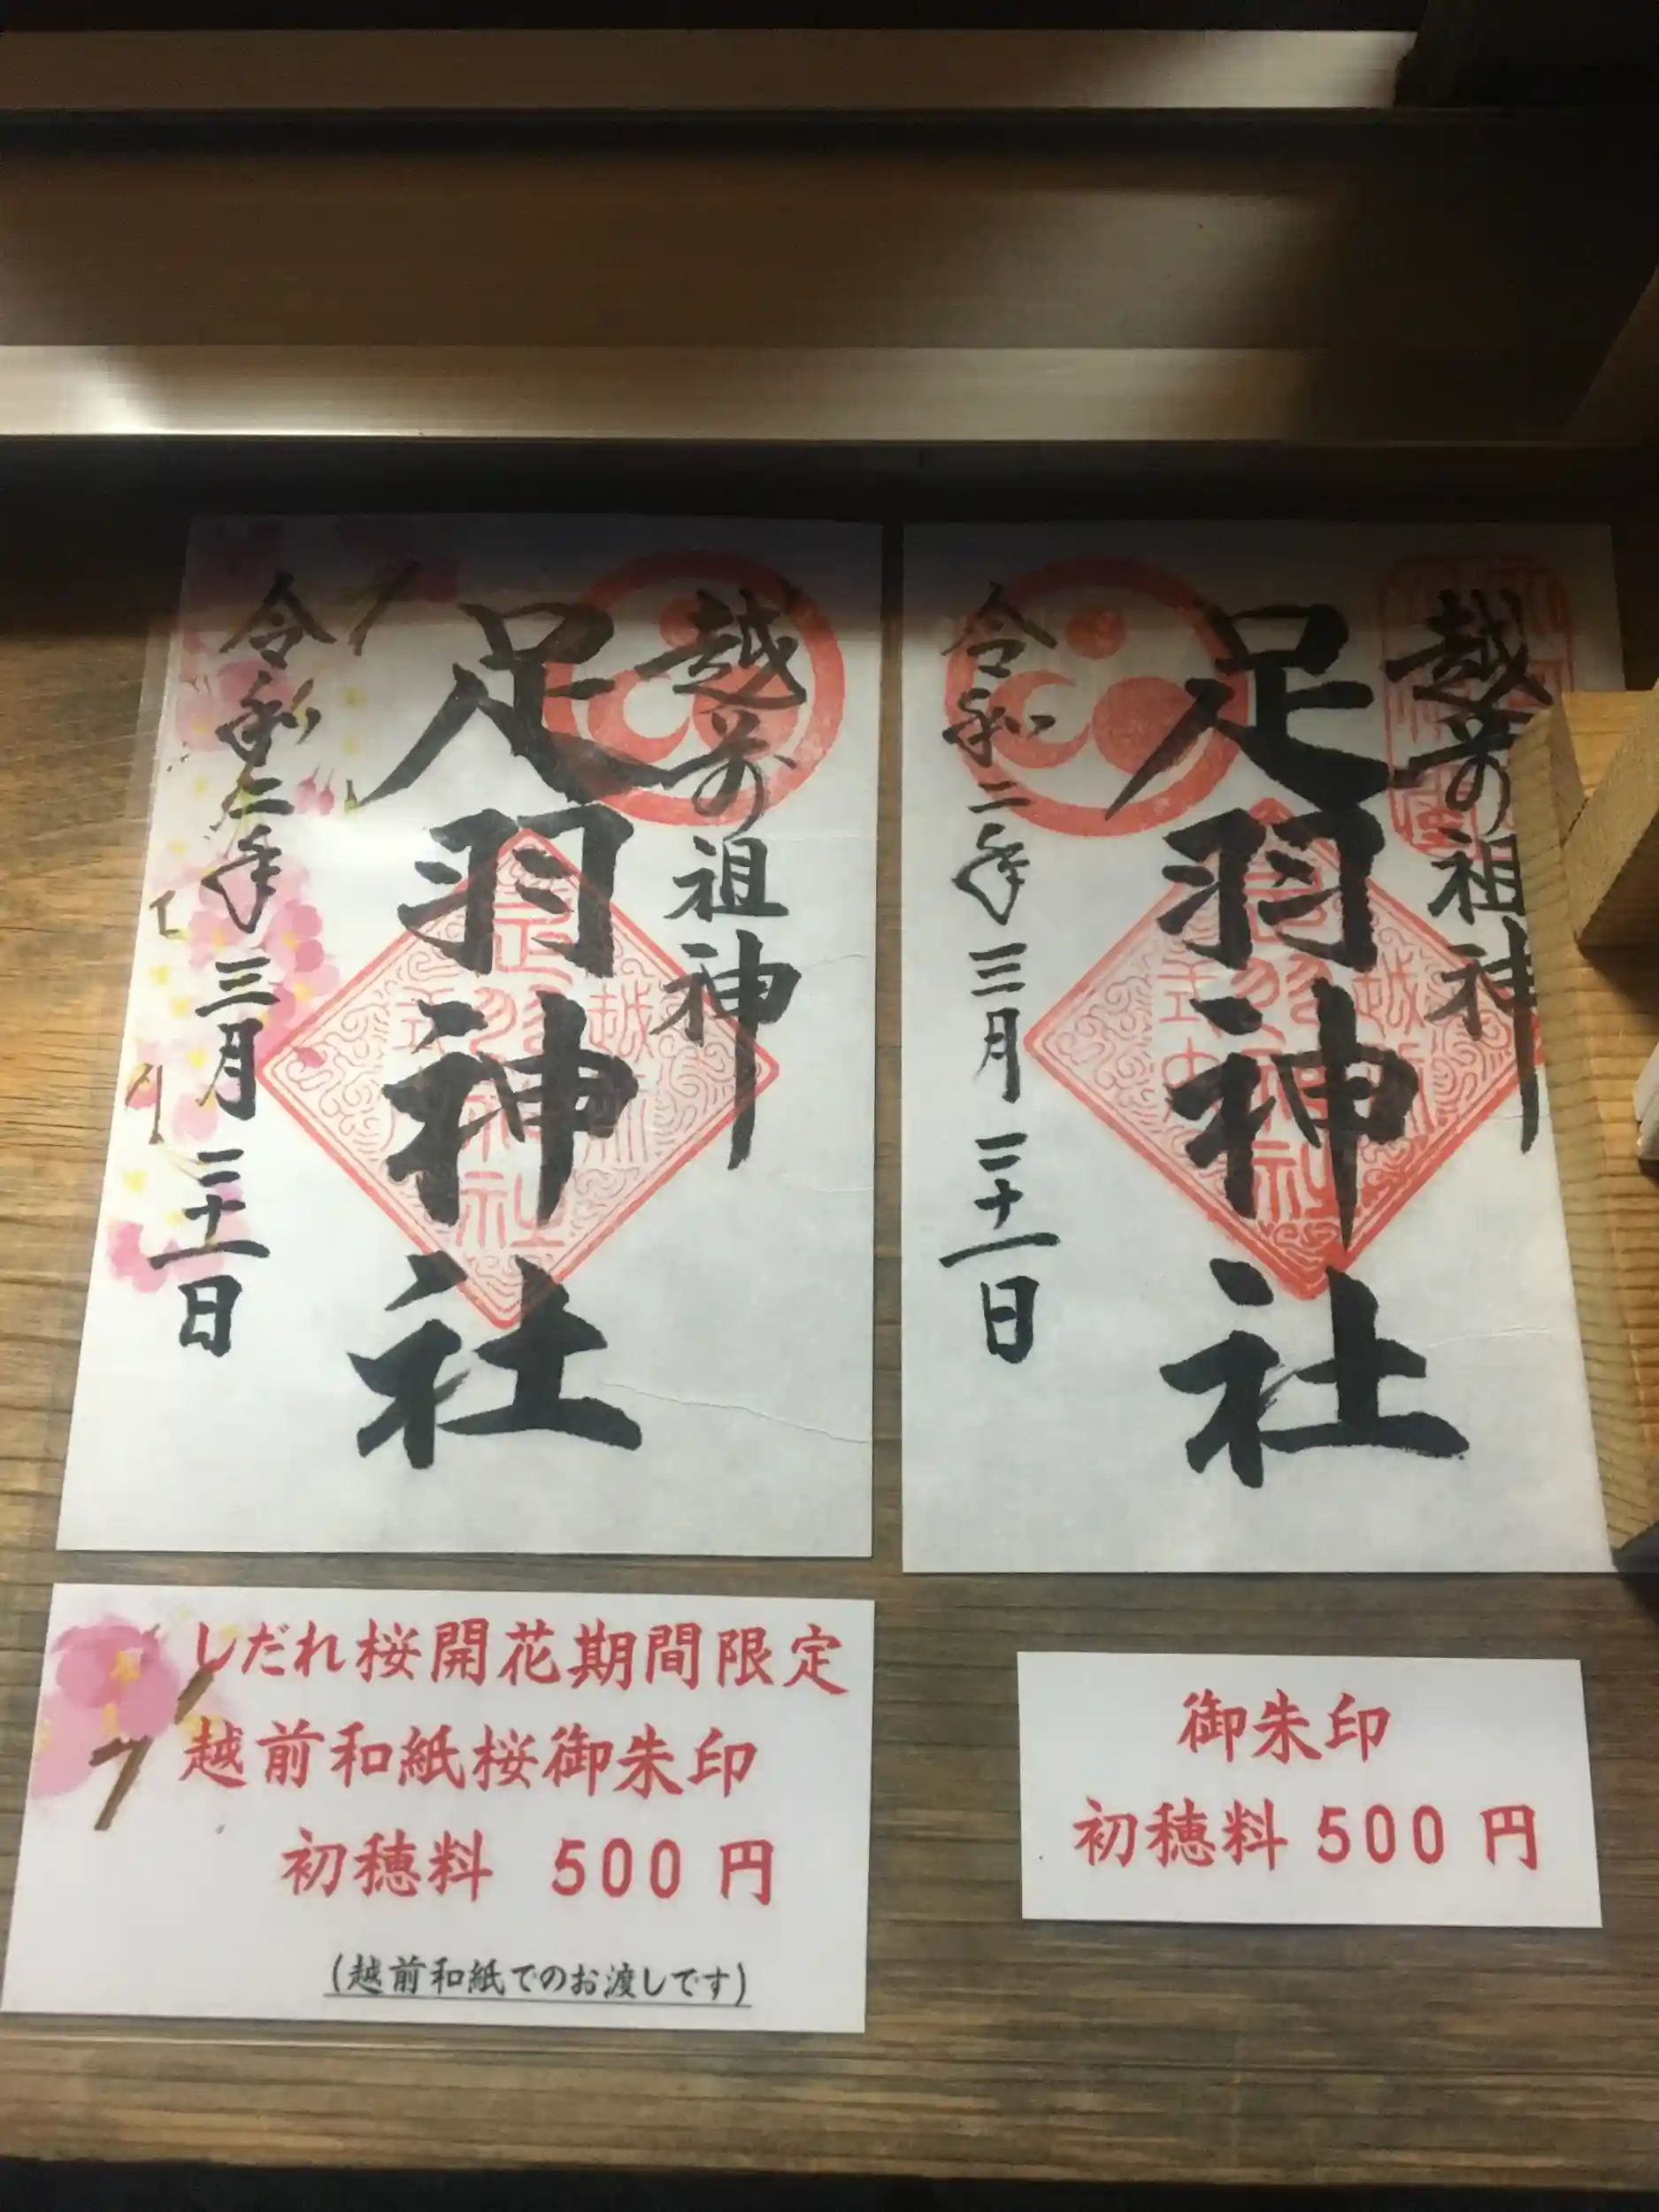 越前の祖神
足羽神社
令和二年三月三十一日
越前の祖神
足羽神社
令和二年三月三十一日
しだれ桜開花期間限定
越前和紙桜御朱印
初穂料 500円
(越前和紙でのお渡しです)
御朱印
初穂料500円